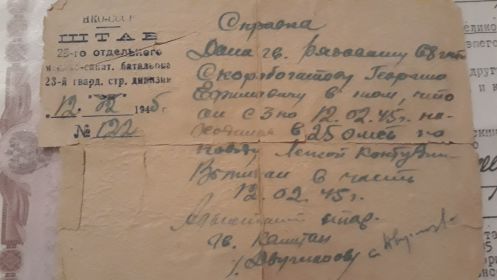 НКО-СССР
ШТАБ
25-го отдельного
медико-санит. батальона
23-й гвард. стр. дивизии
12.02 1945г
№ 122
Справка
Дана гв. рядовому
Скоробогатову Георгию
Ефимовичу в том, что
он с 3 по 12.02.45г. на-
ходился в 25 омсб по
поводу легкой контузии
Выписан в часть
12.02.45г.
гв. капитан